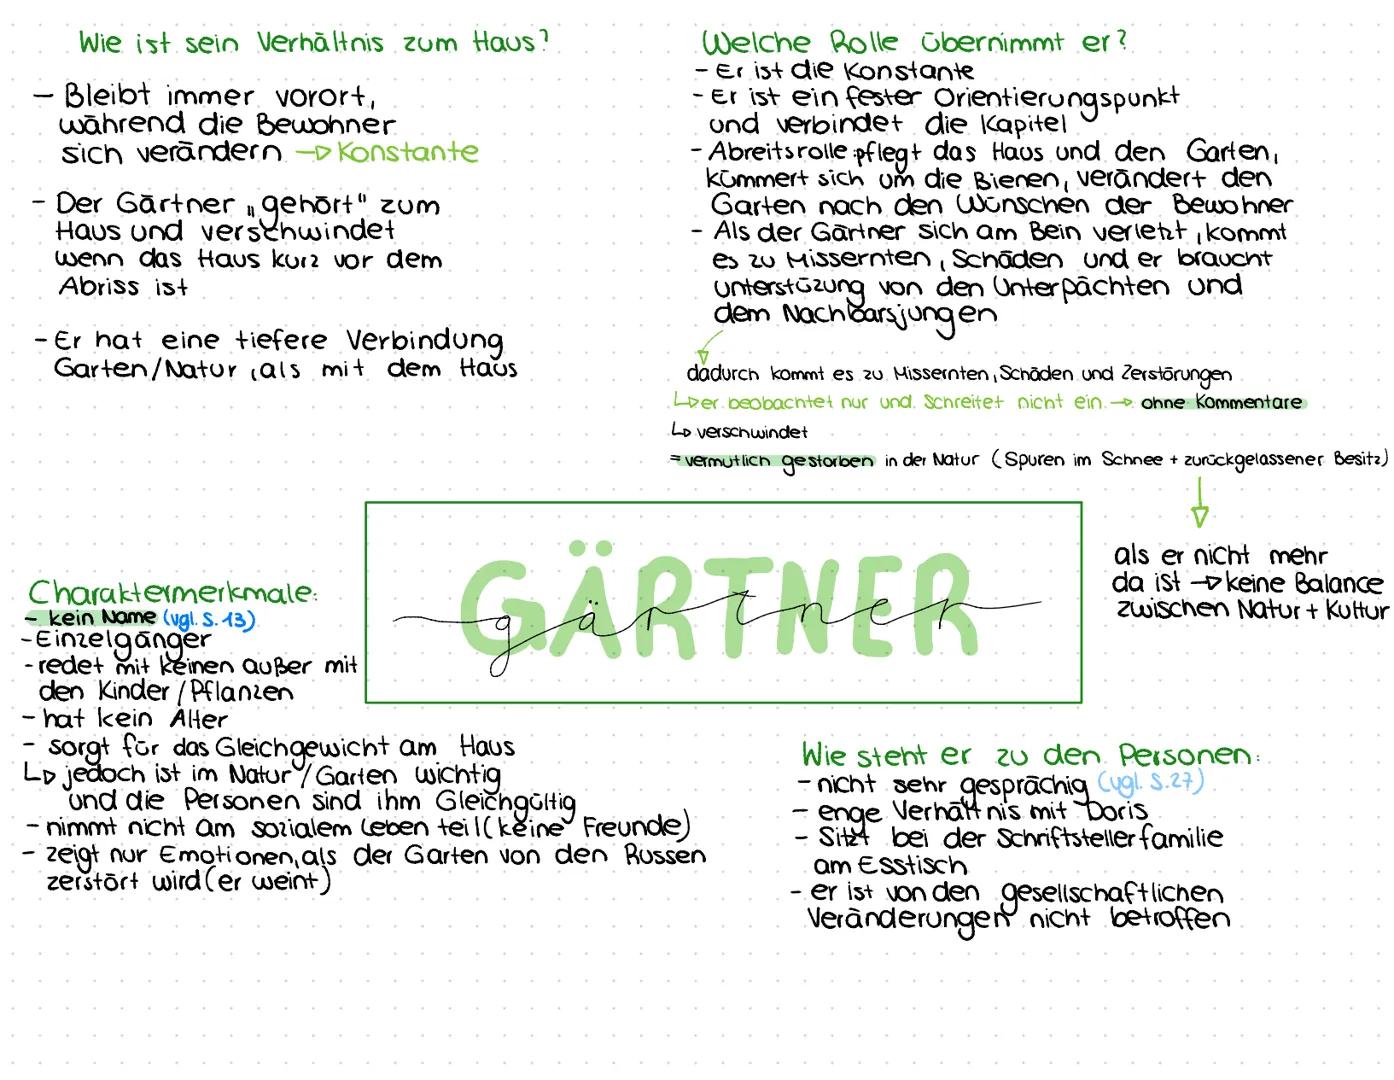 Wie ist sein Verhältnis zum Haus?
- Bleibt immer vorort,
während die Bewohner
sich verändern → Konstante
- Der Gärtner „gehört" zum
Haus und verschwindet
wenn das Haus kurz vor dem
Abriss ist
- Er hat eine tiefere Verbindung
Garten/Natur, als mit dem Haus
Welche Rolle übernimmt er?
- Er ist die Konstante
- Er ist ein fester Orientierungspunkt
und verbindet die Kapitel
- Abreitsrolle: pflegt das Haus und den Garten,
kümmert sich um die Bienen, verändert den
Garten nach den Wünschen der Bewohner
- Als der Gärtner sich am Bein verletzt, kommt
es zu Missernten, Schäden und er braucht
unterstüzung von den Unterpächten und
dem Nachbarsjungen
dadurch kommt es zu Missernten, Schäden und Zerstörungen
↳ er beobachtet nur und schreitet nicht ein → ohne Kommentare
↳ verschwindet
= vermutlich gestorben in der Natur (Spuren im Schnee + zurückgelassener Besitz)
als er nicht mehr
da ist → keine Balance
zwischen Natur + Kultur
GÄRTNER
gärtner
Charaktermerkmale:
- kein Name (vgl. S. 13)
- Einzelgänger
- redet mit keinen außer mit
den Kinder / Pflanzen
- hat kein Alter
- sorgt für das Gleichgewicht am Haus
↳ jedoch ist im Natur / Garten wichtig
und die Personen sind ihm Gleichgültig
- nimmt nicht am sozialem Leben teil (keine Freunde)
- zeigt nur Emotionen, als der Garten von den Russen
zerstört wird (er weint)
Wie steht er zu den Personen:
- nicht sehr gesprächig (vgl. S.27)
- enge Verhältnis mit Doris
- Sitzt bei der Schriftstellerfamilie
am Esstisch
- er ist von den gesellschaftlichen
Veränderungen nicht betroffen